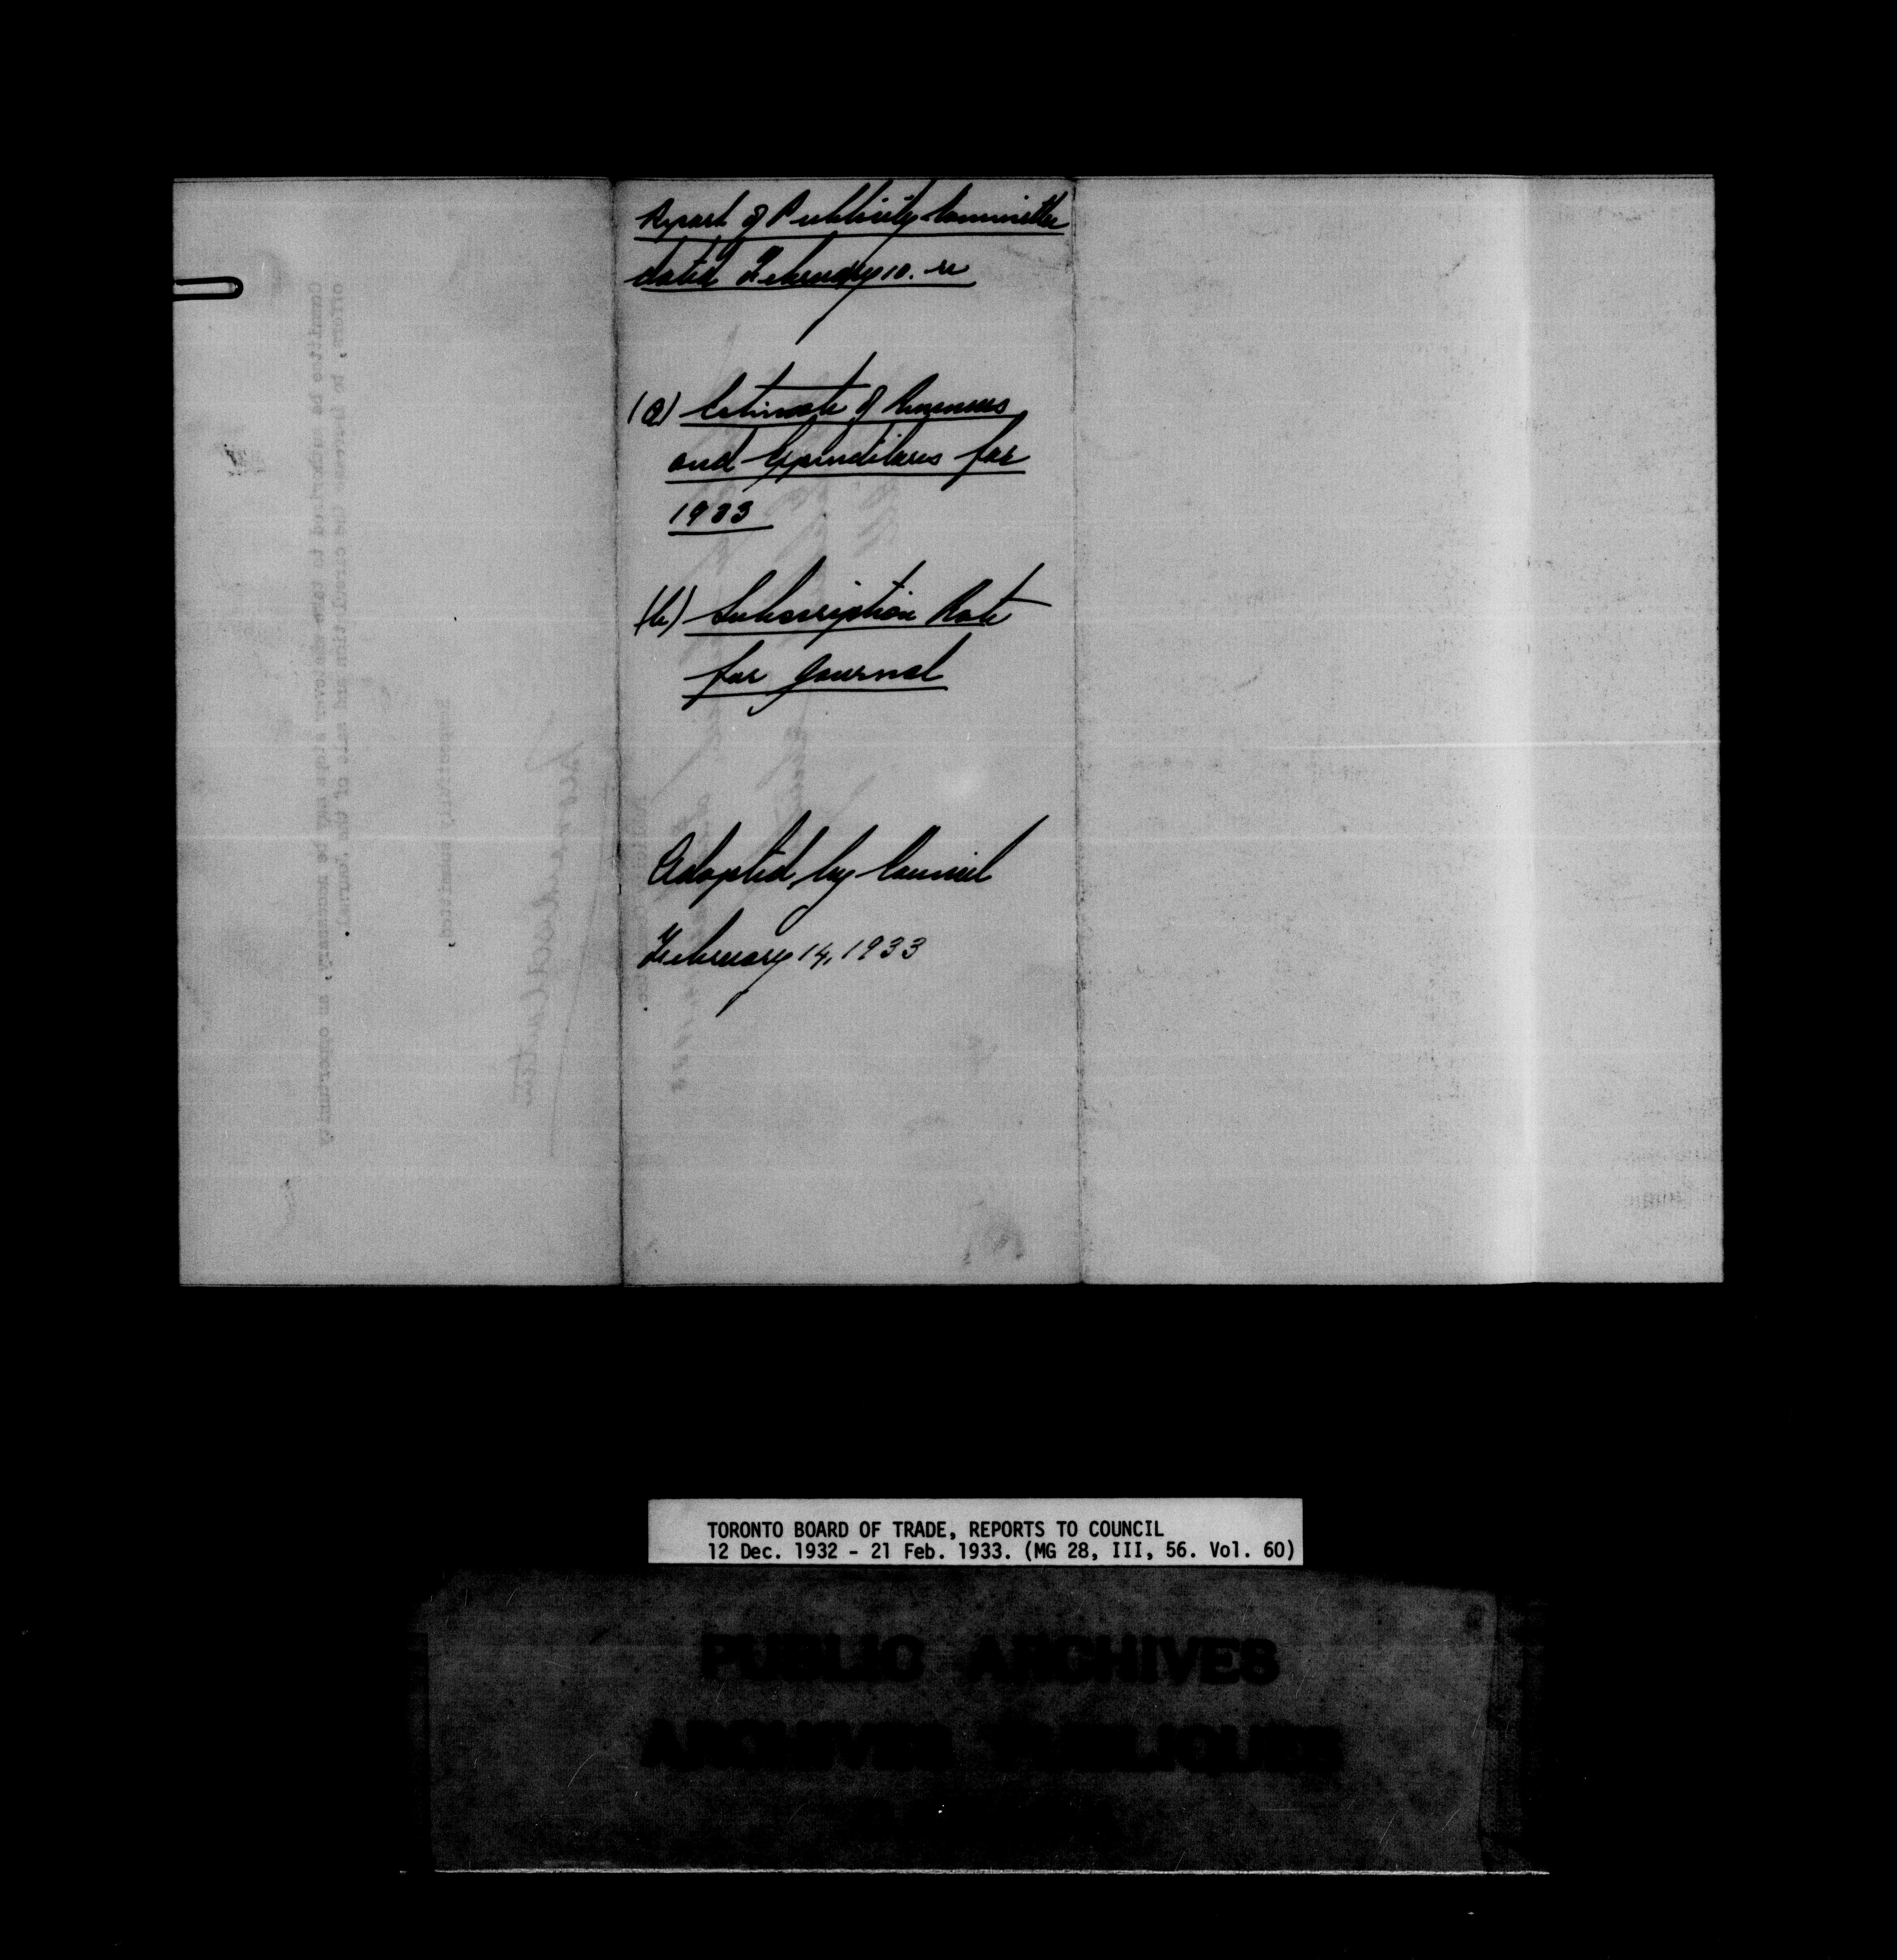 Report of Publicity Committee
dated February 10. re
(a) Estimate of Revenues
and Expenditures for
1933
(b) Subscription Rate
for Journal
Adopted by Council
February 14, 1933
TORONTO BOARD OF TRADE, REPORTS TO COUNCIL
12 Dec. 1932 - 21 Feb. 1933. (MG 28, III, 56. Vol. 60)
PUBLIC ARCHIVES
ARCHIVES PUBLIQUES